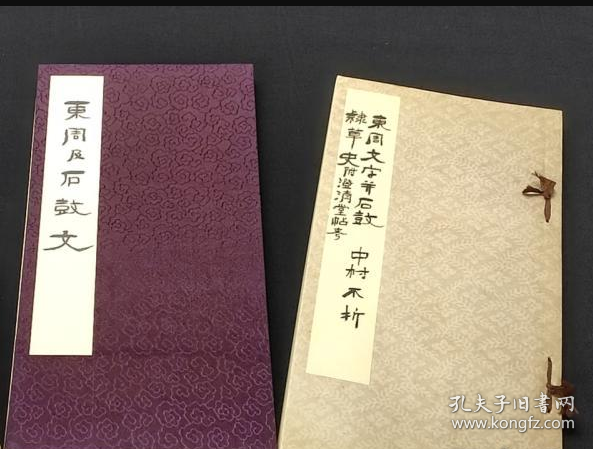 東周及石鼓文
東周文字并石鼓
隸草史附澄清堂帖考
中村不折
孔夫子旧书网
www.kongfz.com